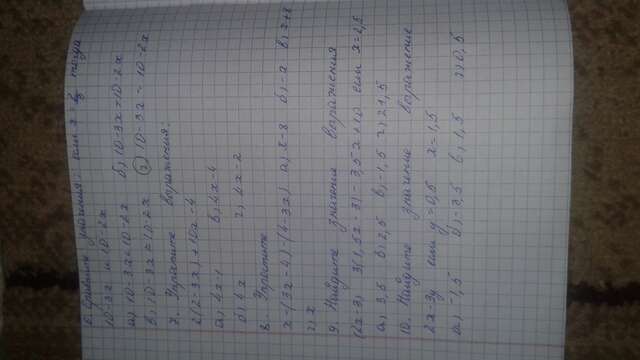 6. Сравните значения: если x = 2/3 тогда
10-3x и 10-2x
а) 10-3x < 10-2x б) 10-3x > 10-2x
в) 10-3x = 10-2x г) 10-3x ~ 10-2x
7. Упростите выражения:
2(2-3x)+10x-4
а) 4x-1 в) 4x-4
б) 4x г) 4x-2
8. Упростите
x-(3x-4)-(4-3x) а) x-8 б) -x в) x+8
г) x
9. Найдите значение выражения
(2x-3) 3(1,5x-3)-3,5x+10 если x=2,5
а) 3,5 б) 2,5 в) -1,5 г) 21,5
10. Найдите значение выражение
2x-3y если y=0,5 x=1,5
а) -1,5 б) -3,5 в) 1,5 г) 0,5